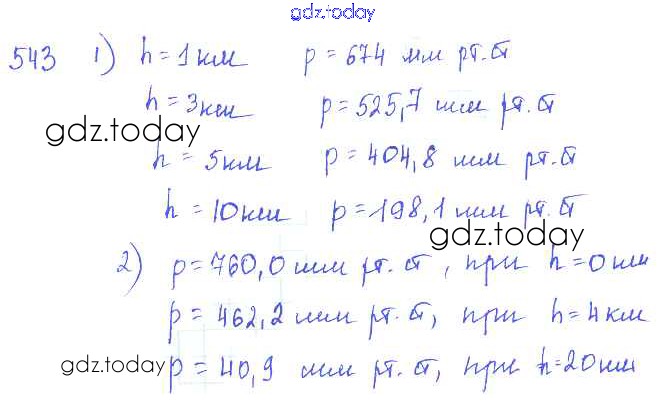 gdz.today
543 1) h = 1 км p = 674 мм рт.ст
h = 3 км p = 525,7 мм рт.ст
gdz.today
h = 5 км p = 404,8 мм рт.ст
h = 10 км p = 198,1 мм рт.ст
gdz.today
2) p = 760,0 мм рт.ст, при h = 0 км
p = 462,2 мм рт.ст, при h = 4 км
gdz.today
p = 40,9 мм рт.ст, при h = 20 км